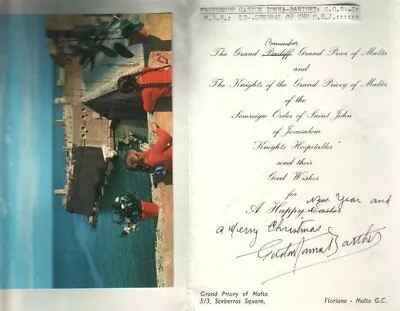 PROFESSOR GASTON TONNA-BARTHET: G.C.S.J:
LT. GENERAL OF THE O.S.J.::::::
Commander
The Grand Bailiff Grand Prior of Malta
and
The Knights of the Grand Priory of Malta
of the
Sovereign Order of Saint John
of Jerusalem
Knights Hospitaller
send their
Good Wishes
for
A Happy Easter New Year and
a Merry Christmas
Gaston Tonna Barthet
Grand Priory of Malta
5/3, Sceberras Square,
Floriana - Malta G.C.